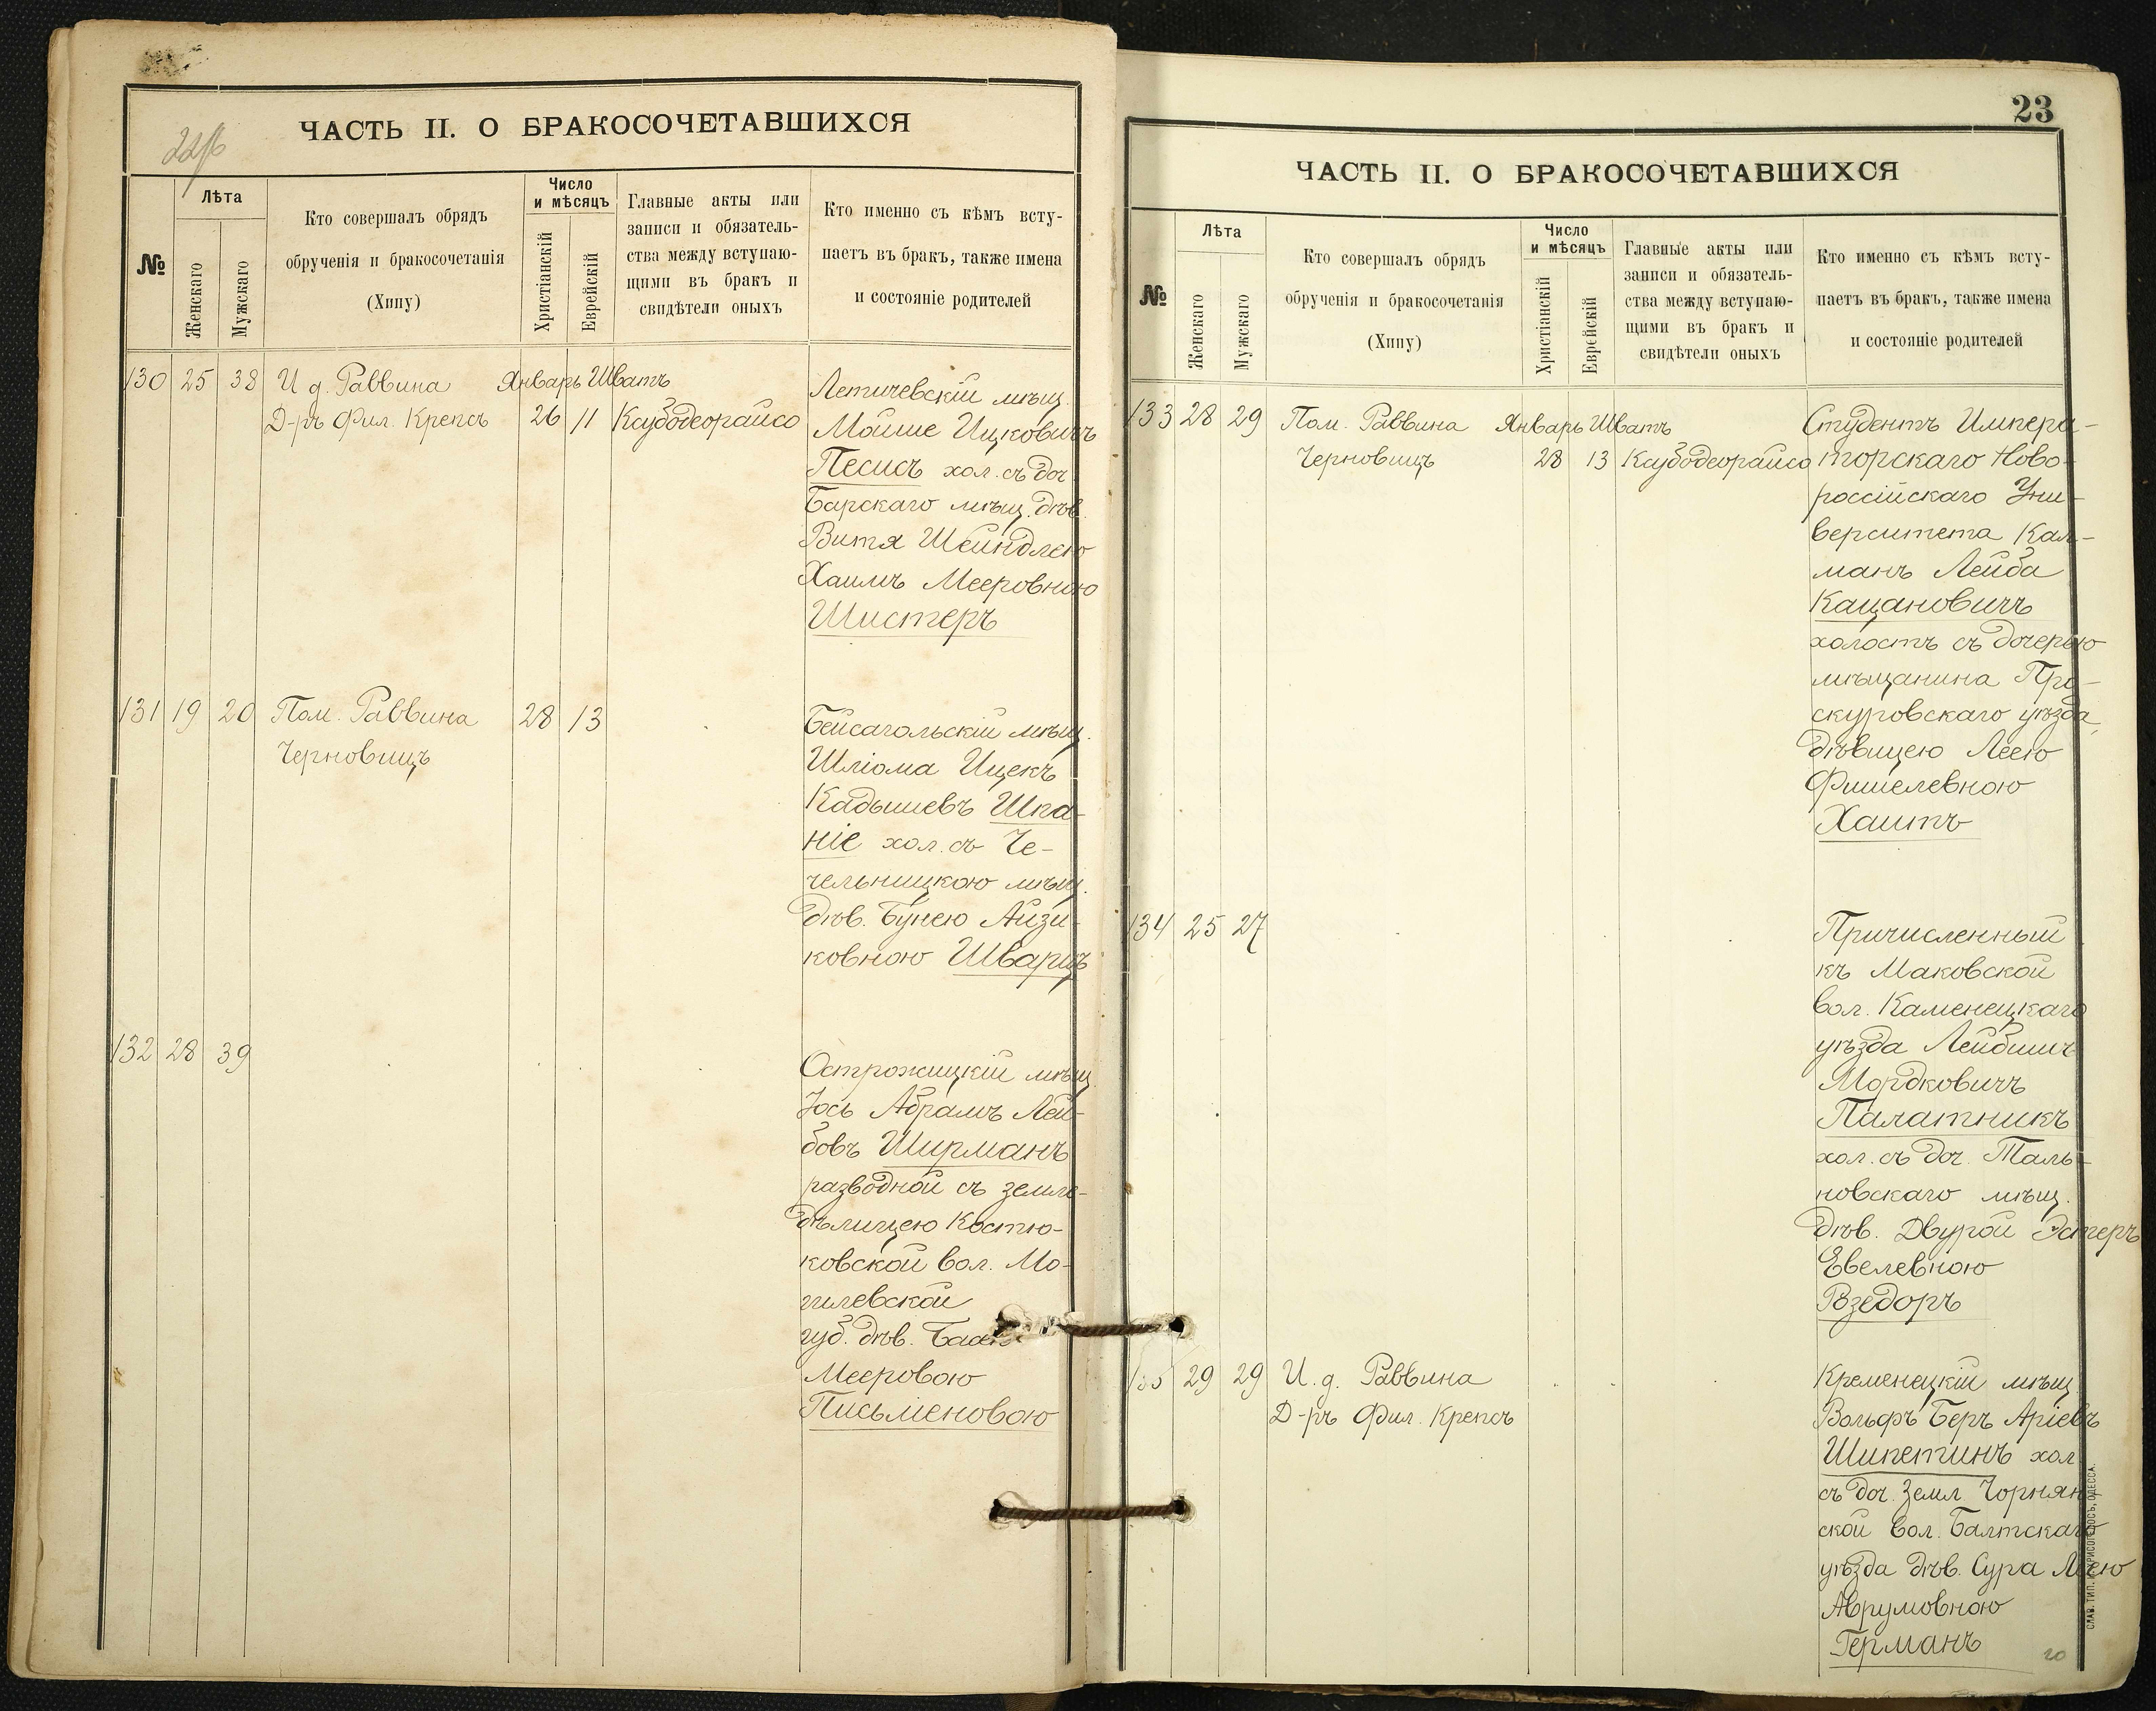 ЧАСТЬ II. О БРАКОСОЧЕТАВШИХСЯ
№
Лѣта
Женскаго
Мужскаго
Кто совершалъ обрядъ
обрученія и бракосочетанія
(Хипу)
Число
и мѣсяцъ
Христіанскій
Еврейскій
Главные акты или
записи и обязатель-
ства между вступаю-
щими въ бракъ и
свидѣтели оныхъ
Кто именно съ кѣмъ всту-
паетъ въ бракъ, также имена
и состояніе родителей
130 25 38 И д. Раввина Январь Шватъ
Д-ръ Фил. Крепсъ 26 11 Ксубодеорайсо
Летичевскій мѣщ.
Мойше Ицковичъ
Песисъ хол. съ доч
Барскаго мѣщ. дѣв.
Витя Шейндлею
Хаимъ Мееровною
Шистеръ
131 19 20 Пом. Раввина 28 13
Черновицъ
Бейсагольскій мѣщ.
Шліома Ицекъ
Кадышевъ Шпа-
ніе хол. съ Че-
чельницкою мѣщ.
дѣв. Бунею Айзи-
ковною Шварцъ
132 28 39
Острожицкій мѣщ
Іось Абрамъ Лей-
бовъ Ширманъ
разводной съ земле-
дѣлицею Костю-
ковской вол. Мо-
гилевской
губ. дѣв.
Мееровою
Письменовою
23
ЧАСТЬ II. О БРАКОСОЧЕТАВШИХСЯ
№
Лѣта
Женскаго
Мужскаго
Кто совершалъ обрядъ
обрученія и бракосочетанія
(Хипу)
Число
и мѣсяцъ
Христіанскій
Еврейскій
Главные акты или
записи и обязатель-
ства между вступаю-
щими въ бракъ и
свидѣтели оныхъ
Кто именно съ кѣмъ всту-
паетъ въ бракъ, также имена
и состояніе родителей
133 28 29 Пом. Раввина Январь Шватъ
Черновицъ 28 13 Ксубодеорайсо
Студентъ Импера-
торскаго Ново-
россійскаго Уни-
верситета Кал-
манъ Лейба
Кацановичъ
холостъ съ дочерью
мѣщанина Про-
скуровскаго уѣзда,
дѣвицею Леею
Фишелевною
Хаитъ
134 25 27
Причисленный
къ Маковской
вол. Каменецкаго
уѣзда Лейбишъ
Мордковичъ
Палатникъ
хол. съ доч. Таль-
новскаго мѣщ.
дѣв. Двурой Эстеръ
Евелевною
Взедоръ
135 29 29 И. д. Раввина
Д-ръ Фил. Крепсъ
Кременецкій мѣщ
Вольфъ Беръ Аріевъ
Шипетинъ хол
съ доч. Земл. Чорнян
ской вол. Балтскаго
уѣзда дѣв. Сура Леею
Аврумовною
Германъ